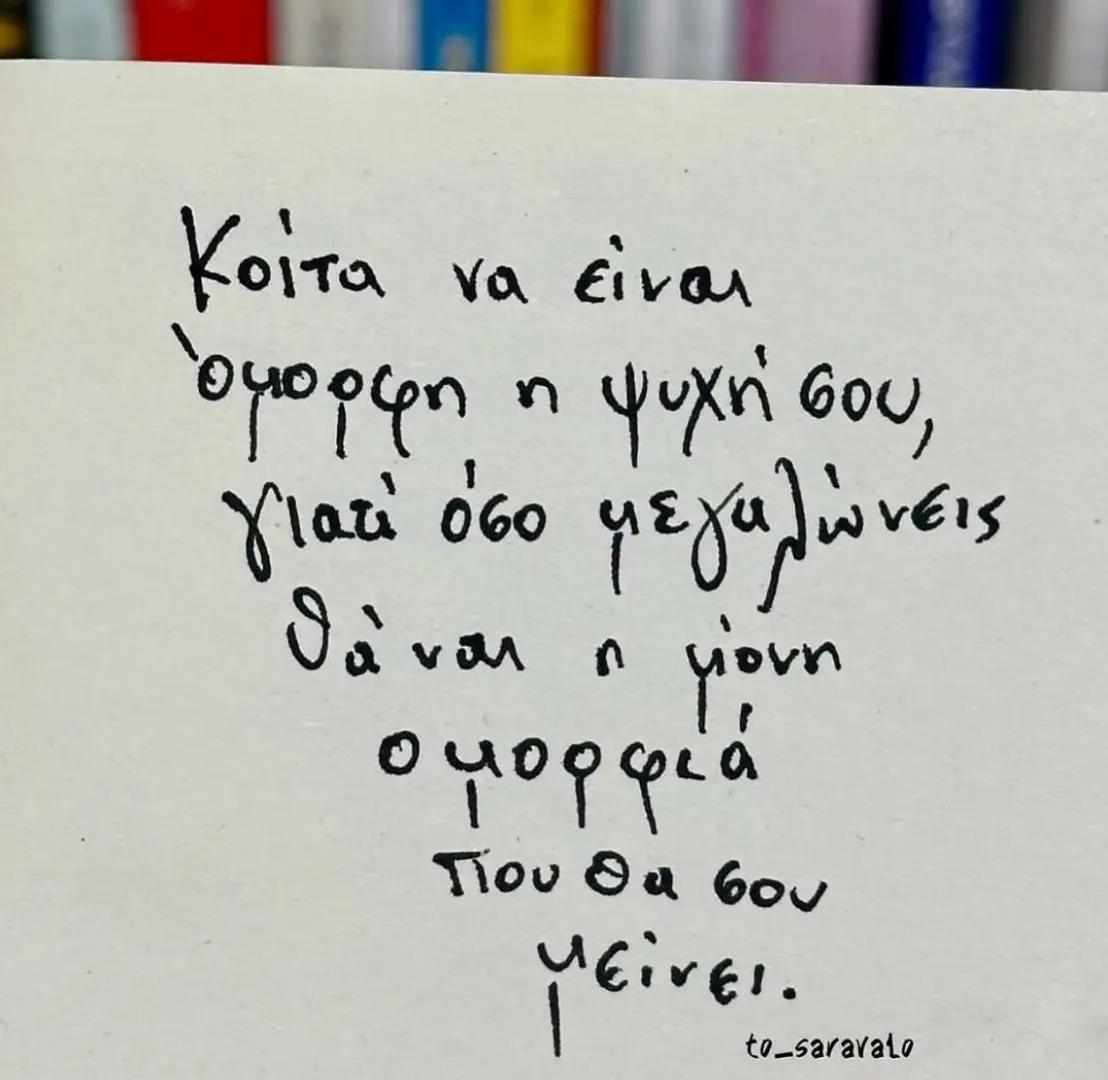 Κοίτα να είναι
όμορφη η ψυχή σου,
γιατί όσο μεγαλώνεις
θά ναι η μόνη
ομορφιά
που θα σου
μείνει.
to_saravalo